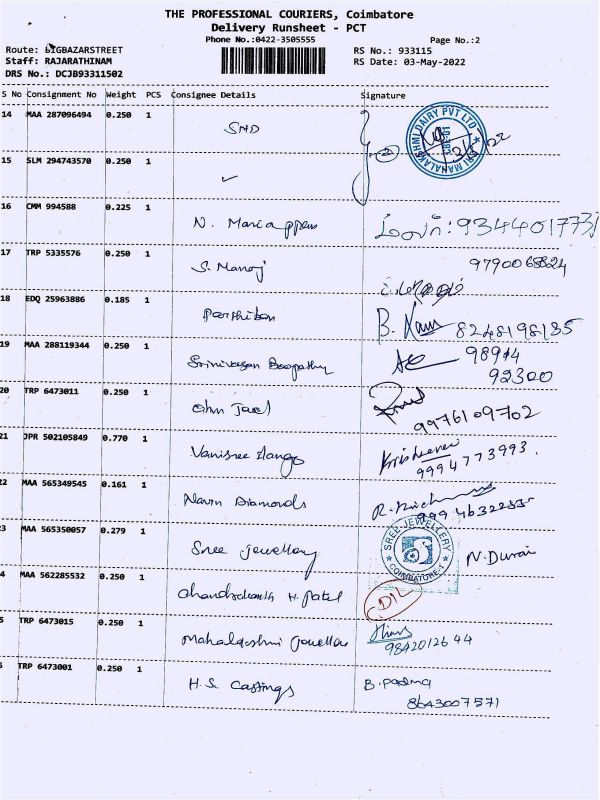 THE PROFESSIONAL COURIERS, Coimbatore
Delivery Runsheet - PCT
Phone No.:0422-3505555
Page No.:2
Route: BIGBAZARSTREET
RS No.: 933115
Staff: RAJARATHINAM
RS Date: 03-May-2022
DRS No.: DCJB93311502
S No Consignment No Weight PCS Consignee Details Signature
14 MAA 287096494 0.250 1 SMD
15 SLM 294743570 0.250 1 ✓ 2
16 CMM 994588 0.225 1 N. Mariappan 9344017731
17 TRP 5335576 0.250 1 S. Manoj 9790068824
18 EDQ 25963886 0.185 1 Parthiban B. 8248198135
19 MAA 288119344 0.250 1 Srinivasan Boopathy 98944
92300
20 TRP 6473011 0.250 1 Ohm Jewel
9976109702
21 JPR 502105849 0.770 1 Vanisree Ilango
9994773993.
22 MAA 565349545 0.161 1 Navin Diamonds
23 MAA 565350057 0.279 1 Sree Jewellery SREE JEWELLERY COIMBATORE-1 N. Durai
4 MAA 562285532 0.250 1 Chandrakanth H. Patel D/L
5 TRP 6473015 0.250 1 Mahalaxshmi Jewellers
9842012644
TRP 6473001 0.250 1 H.S. Castings B. Padma
8643007571